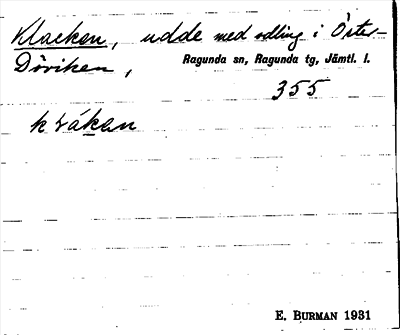 Klacken, udde med odling i Öster-
Döviken, Ragunda sn, Ragunda tg, Jämtl. l.
355
E. BURMAN 1931